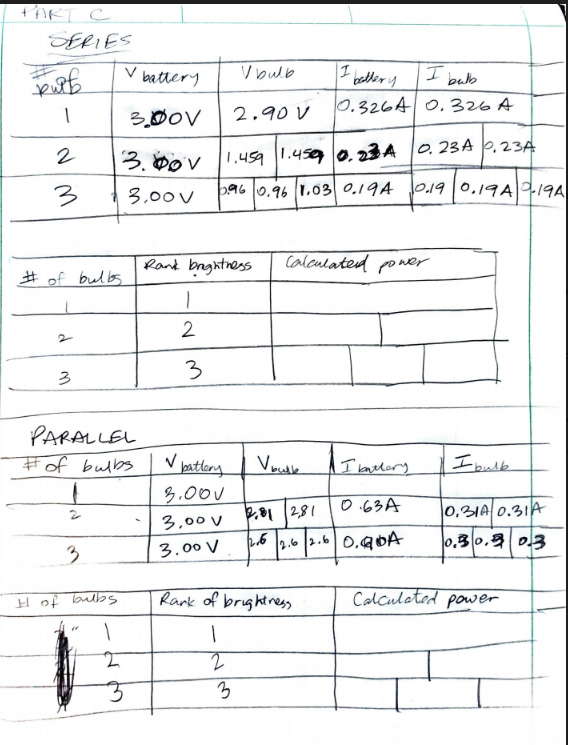 PART C
SERIES
# bulb V battery V bulb I battery I bulb
1 3.00V 2.90 V 0.326A 0.326 A
2 3.00V 1.459 1.459 0.23A 0.23A 0.23A
3 3.00V 0.96 0.96 1.03 0.19A 0.19 0.19A 0.19A
# of bulbs Rank brightness Calculated power
1 1
2 2
3 3
PARALLEL
# of bulbs V battery V bulb I battery I bulb
1 3.00V
2 3.00 V 2.81 2.81 0.63A 0.31A 0.31A
3 3.00 V 2.6 2.6 2.6 0.90A 0.3 0.3 0.3
# of bulbs Rank of brightness Calculated power
1 1
2 2
3 3